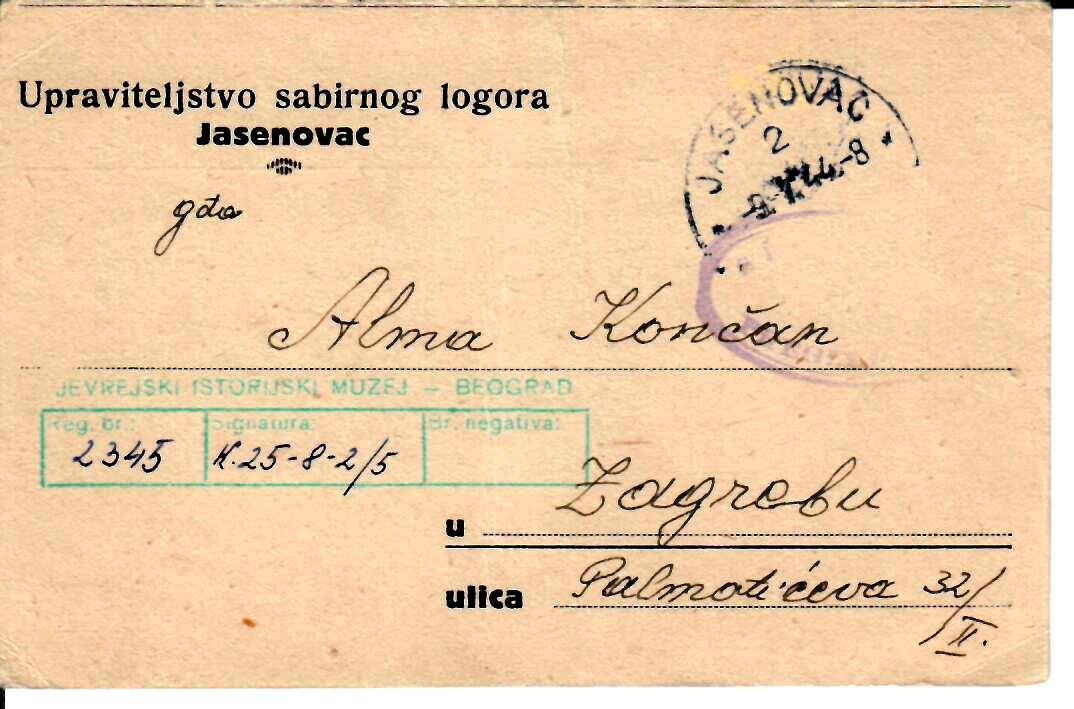 Upraviteljstvo sabirnog logora
Jasenovac
JASENOVAC
2
gđa
Alma Končan
JEVREJSKI ISTORIJSKI MUZEJ — BEOGRAD
Reg. br.: Signatura: Br. negativa:
2345 K.25-8-2/5
u Zagrebu
ulica Palmotićeva 32/II.